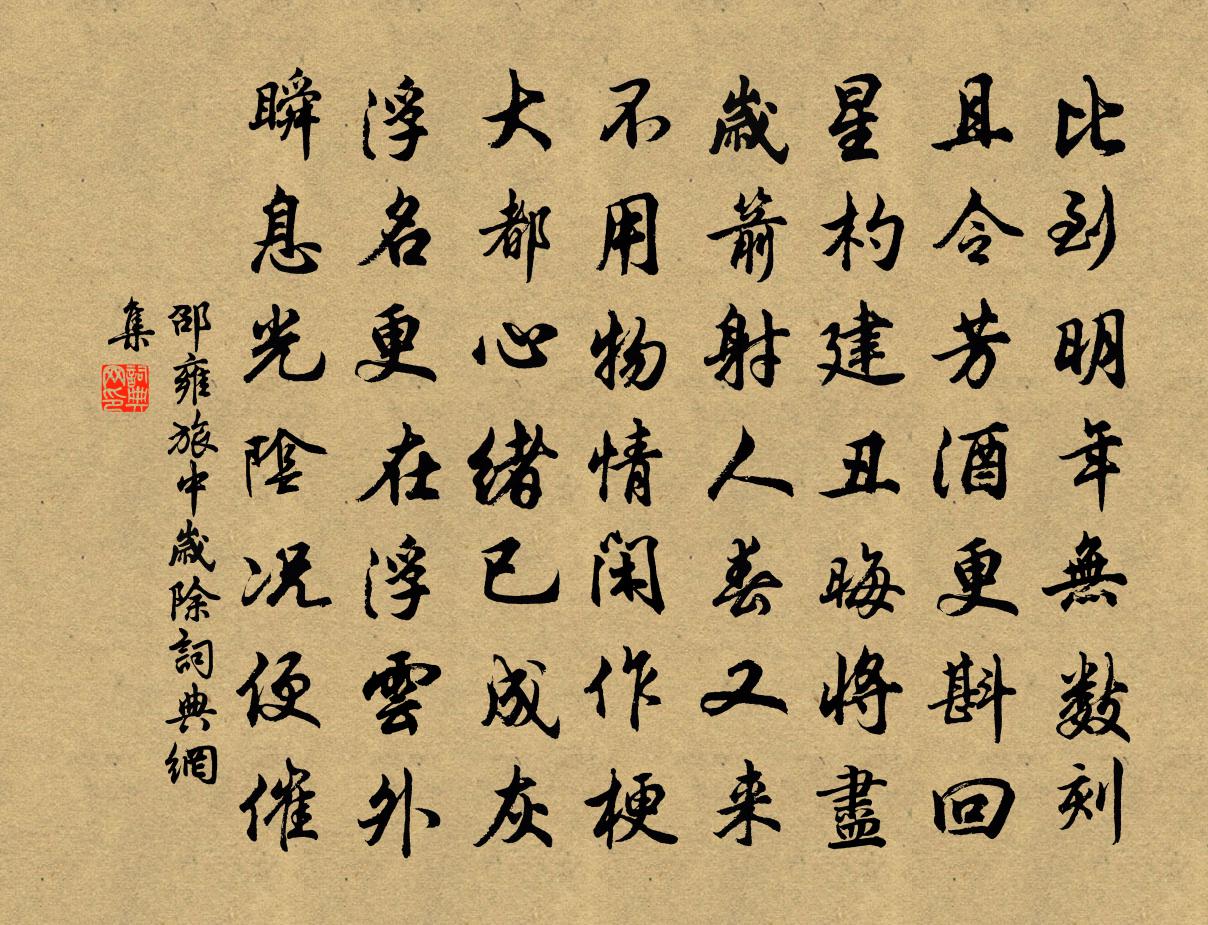 比到明年無数刻
且令芳酒更斟回
星杓建丑晦将盡
歲箭射人春又来
不用物情閑作梗
大都心緒已成灰
浮名更在浮雲外
瞬息光陰况便催
邵雍旅中歲除詞典網
集
詞典
网印